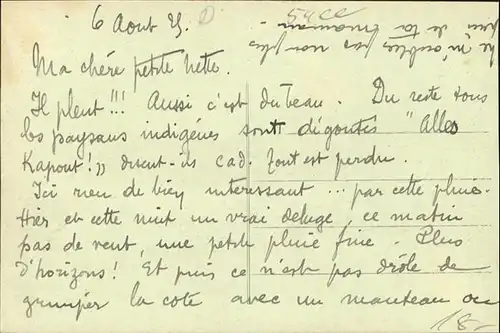 6 Aout 25.
Ma chère petite Nette.
Il pleut !!! Aussi c'est du beau. Du reste tous
les paysans indigénes sont dégoutés "Alles
Kapout!" disent-ils cad. tout est perdu.
Ici rien de bien interessant ... par cette pluie.
Hier et cette nuit un vrai deluge, ce matin
pas de vent, une petite pluie fine. Plus
d'horizons! Et puis ce n'est pas drôle de
grimper la cote avec un manteau ou
Ne m'oublies pas non plus
de ta
54CC
18-